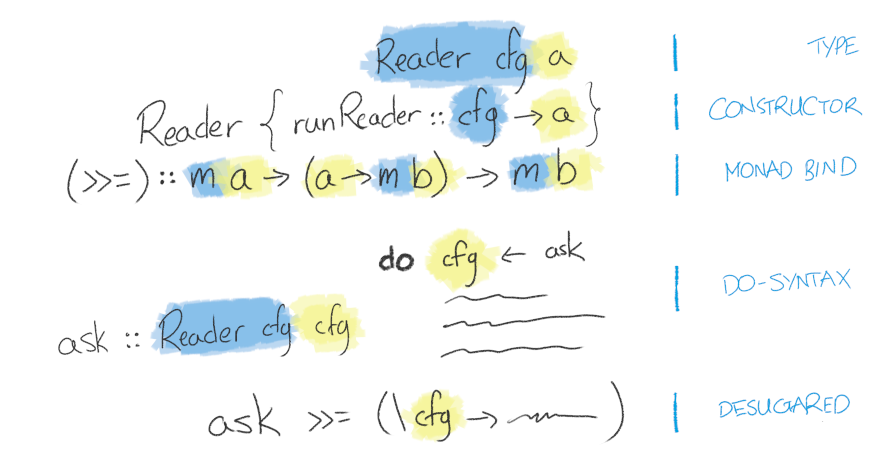 Reader cfg a TYPE
Reader { runReader :: cfg → a } CONSTRUCTOR
(>>=) :: m a → (a → m b) → m b MONAD BIND
do cfg ← ask DO-SYNTAX
ask :: Reader cfg cfg
ask >>= (\ cfg → ) DESUGARED